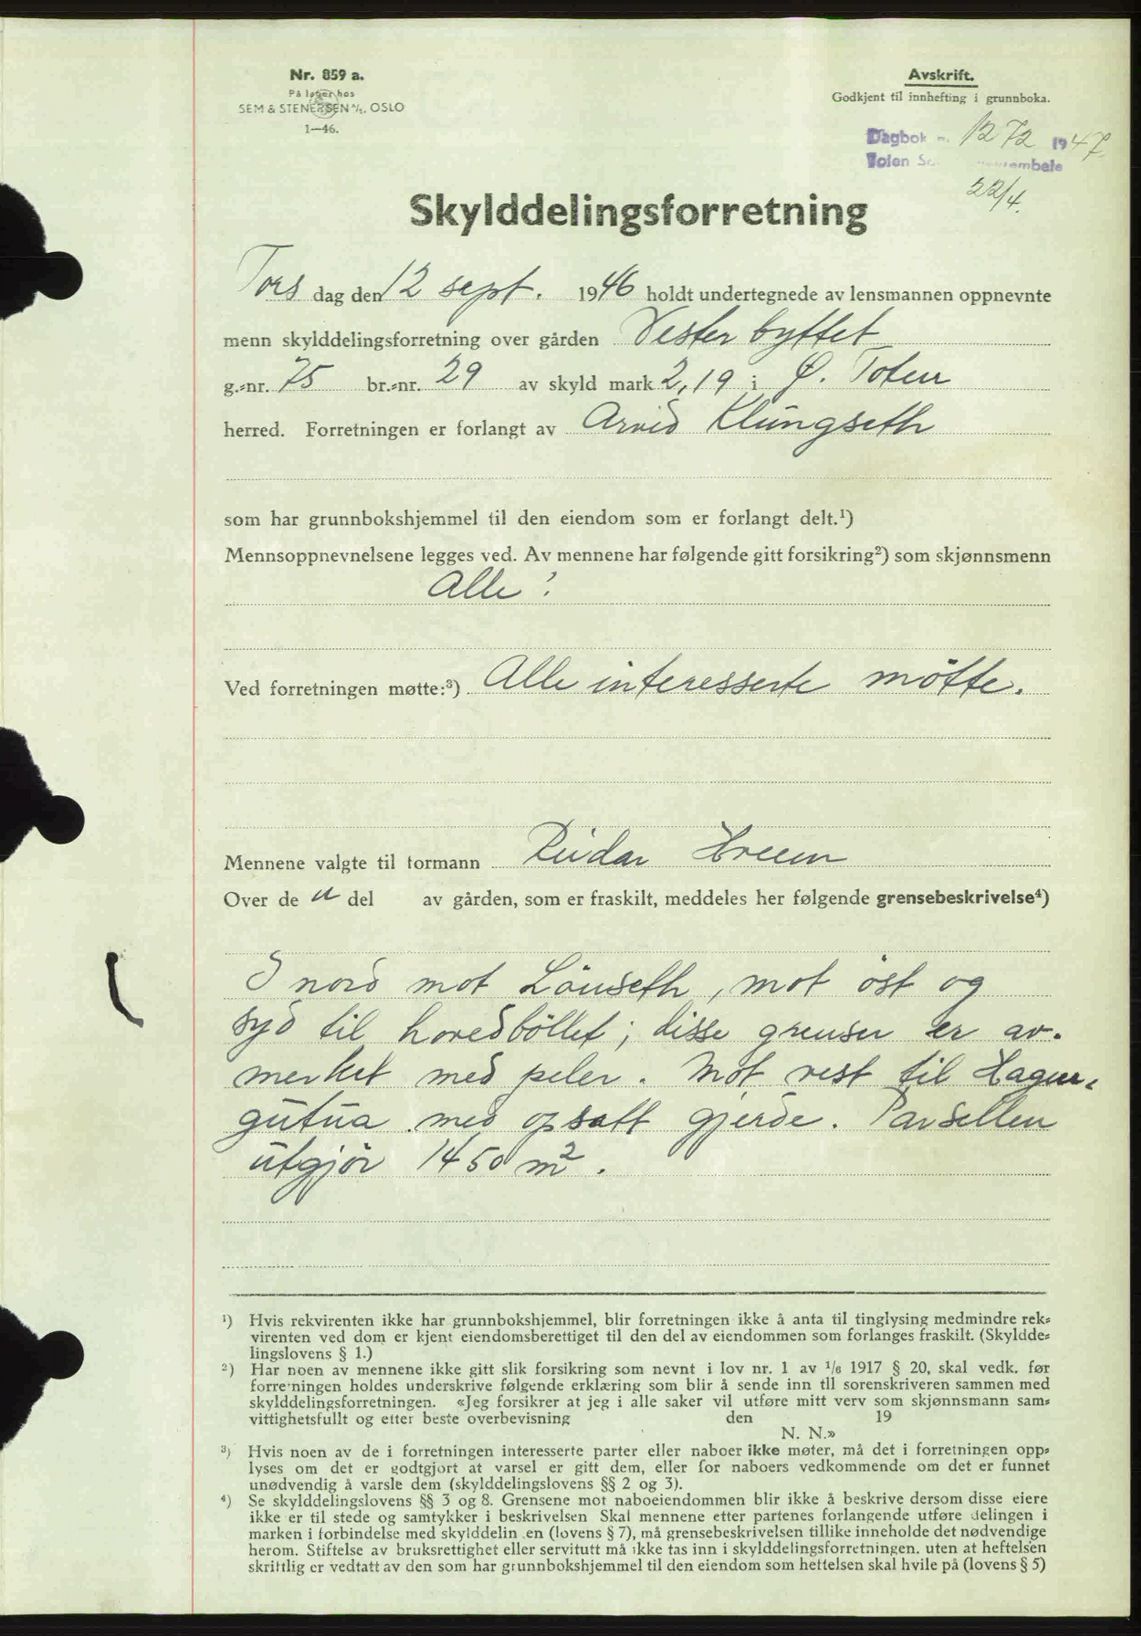 Nr. 859 a.
På lager hos
SEM & STENERSEN A/S. OSLO
1—46.
Avskrift.
Godkjent til innhefting i grunnboka.
Dagbok 1272 1947.
22/4.
Skylddelingsforretning
Tors dag den 12 sept. 1946 holdt undertegnede av lensmannen oppnevnte
menn skylddelingsforretning over gården Vesterbyttet
g.=nr. 75 br.=nr. 29 av skyld mark 2,19 i Ø. Toten
herred. Forretningen er forlangt av Arvid Klungseth
som har grunnbokshjemmel til den eiendom som er forlangt delt.¹)
Mennsoppnevnelsene legges ved. Av mennene har følgende gitt forsikring²) som skjønnsmenn
Alle!
Ved forretningen møtte:³) Alle interesserte mötte.
Mennene valgte til formann Reidar
Over de n del av gården, som er fraskilt, meddeles her følgende grensebeskrivelse⁴)
I nord mot Lönseth, mot öst og
syd til hovedböllet; disse grenser er av-
merket med peler. Mot vest til Hager-
gutua med opsatt gjerde. Parsellen
utgjör 1450 m².
¹) Hvis rekvirenten ikke har grunnbokshjemmel, blir forretningen ikke å anta til tinglysing medmindre rek=
virenten ved dom er kjent eiendomsberettiget til den del av eiendommen som forlanges fraskilt. (Skyldde=
lingslovens § 1.)
²) Har noen av mennene ikke gitt slik forsikring som nevnt i lov nr. 1 av 1/6 1917 § 20, skal vedk. før
forretningen holdes underskrive følgende erklæring som blir å sende inn til sorenskriveren sammen med
skylddelingsforretningen. «Jeg forsikrer at jeg i alle saker vil utføre mitt verv som skjønnsmann sam=
vittighetsfullt og etter beste overbevisning den 19
N. N.»
³) Hvis noen av de i forretningen interesserte parter eller naboer ikke møter, må det i forretningen opp=
lyses om det er godtgjort at varsel er gitt dem, eller for naboers vedkommende om det er funnet
unødvendig å varsle dem (skylddelingslovens §§ 2 og 3).
⁴) Se skylddelingslovens §§ 3 og 8. Grensene mot naboeiendommen blir ikke å beskrive dersom disse eiere
ikke er til stede og samtykker i beskrivelsen Skal mennene etter partenes forlangende utføre delingen i
marken i forbindelse med skylddelin en (lovens § 7), må grensebeskrivelsen tillike inneholde det nødvendige
herom. Stiftelse av bruksrettighet eller servitutt må ikke tas inn i skylddelingsforretningen. uten at heftelsen
skriftlig er vedtatt av den som har grunnbokshjemmel til den eiendom som hettelsen skal hvile på (lovens § 5)